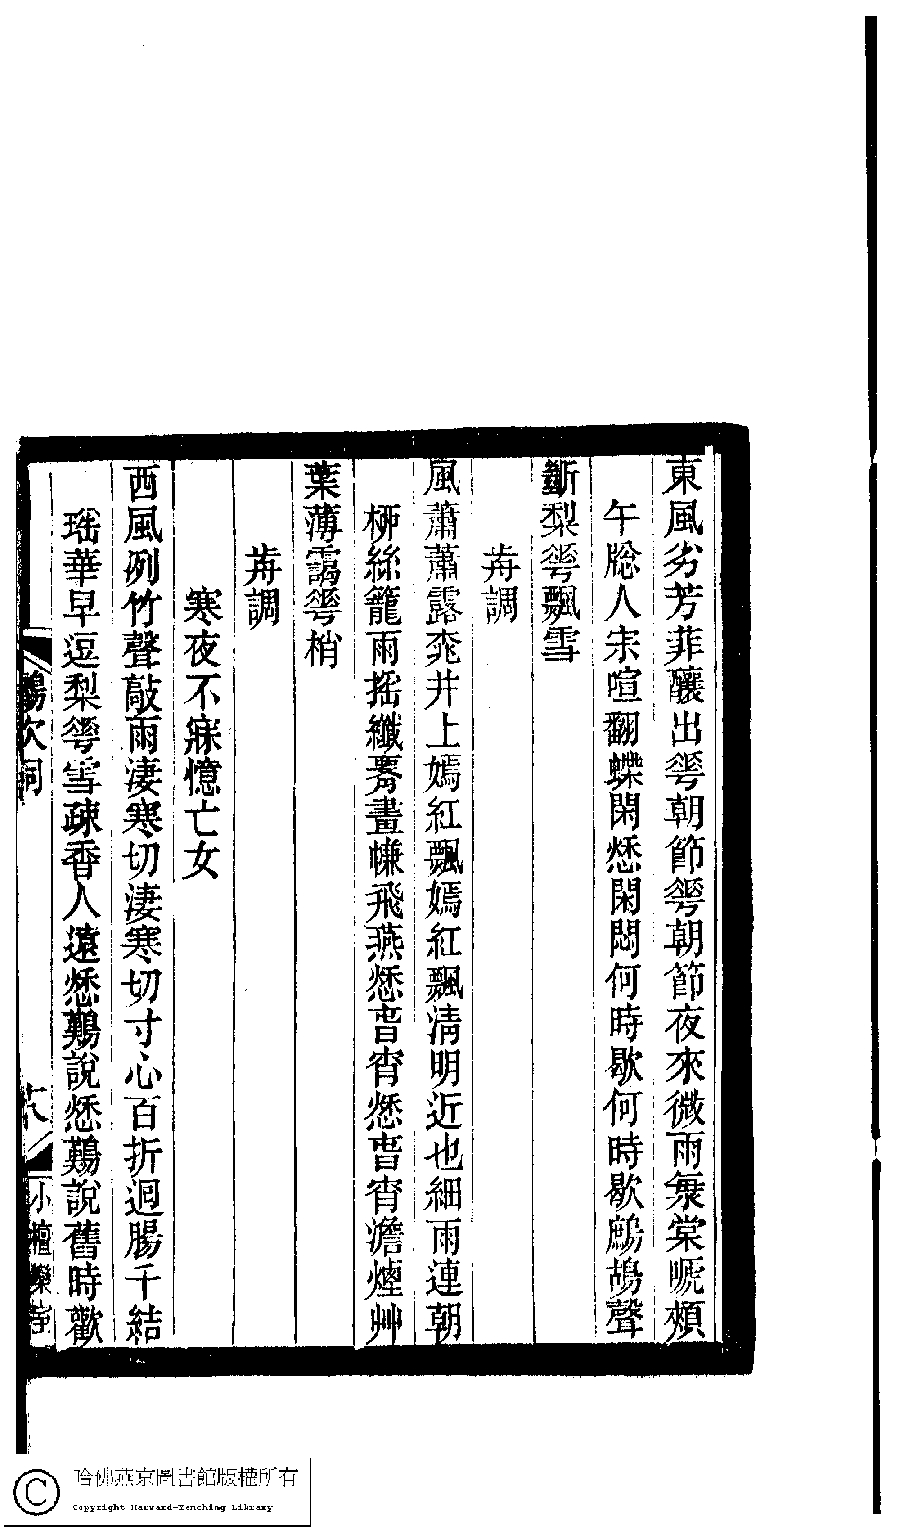 東風劣芳菲釀出蕚朝節蕚朝節夜來微雨海棠嘅頰
午牕人柬喧翻蝶閑愁閑悶何時歇何時歇鷓鴣聲
斷梨蕚飄雪
前調
風蕭蕭露桃井上嫣紅飄嫣紅飄淸明近也細雨連朝
柳絲籠雨搖纖喬畫㡘飛燕愁昏宵愁昏宵澹煙艸
葉薄靄蕚梢
前調
寒夜不寐憶亡女
西風冽竹聲敲雨淒寒切淒寒切寸心百折迴腸千結
瑤華早逗梨蕚雪疎香人遠愁難說愁難說舊時歡
小檀欒
哈佛燕京圖書館版權所有
Copyright Harvard-Yenching Library